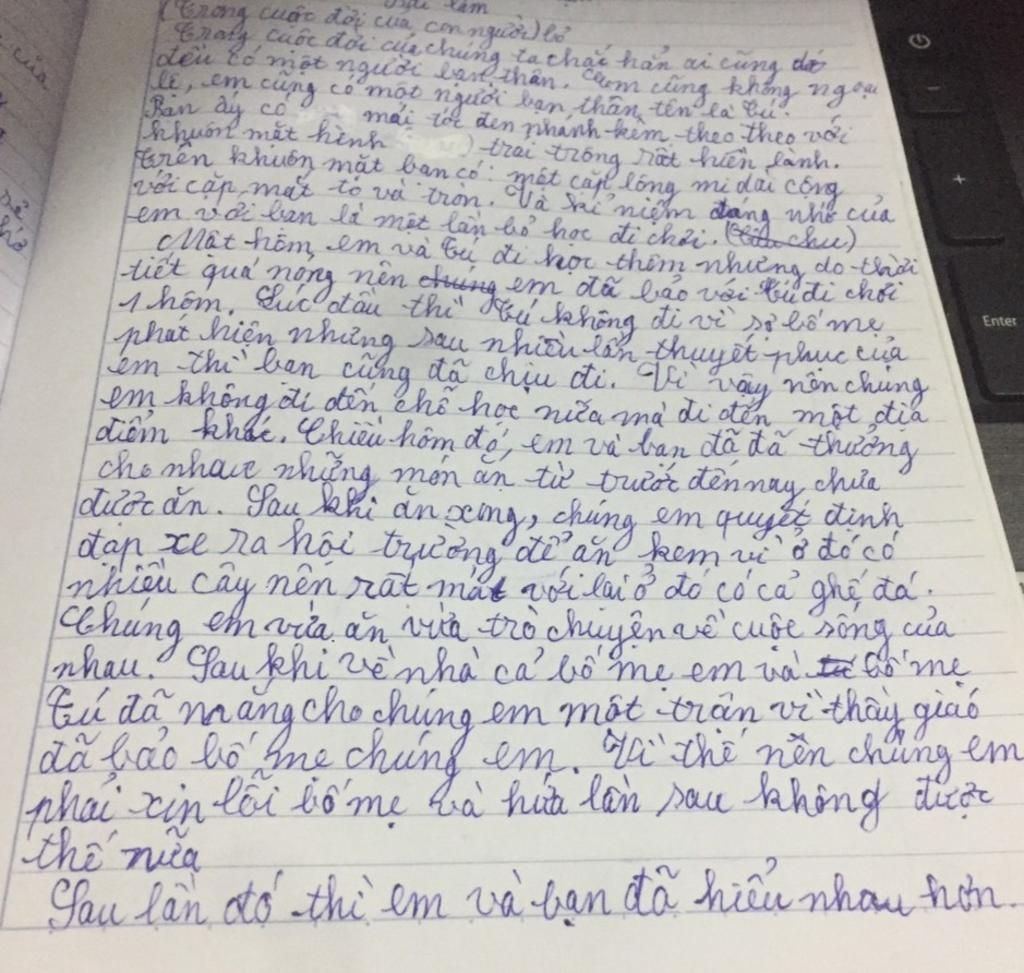 Bài làm
(Trong cuộc đời của con người) bỏ
Trong cuộc đời của chúng ta chắc hẳn ai cũng
đều có một người bạn thân. Em cũng không ngoại
lệ, em cũng có một người bạn thân tên là Tú.
Bạn ấy có mái tóc đen nhánh kèm theo theo với
khuôn mặt hình ) trai trông rất hiền lành.
Trên khuôn mặt bạn có: một cặp lông mi dài cộng
với cặp mắt to và tròn. Và kỉ niệm đáng nhớ của
em với bạn là một lần bỏ học đi chơi. ( chu)
Một hôm, em và Tú đi học thêm nhưng do thời
tiết quá nóng nên chúng em đã bảo với Tú đi chơi
1 hôm. Lúc đầu thì Tú không đi vì sợ bố mẹ
phát hiện nhưng sau nhiều lần thuyết phục của
em thì bạn cũng đã chịu đi. Vì vậy nên chúng
em không đi đến chỗ học nữa mà đi đến một địa
điểm khác. Chiều hôm đó, em và bạn đã đã thưởng
cho nhau những món ăn từ trước đến nay chưa
được ăn. Sau khi ăn xong, chúng em quyết định
đạp xe ra hội trường để ăn kem vì ở đó có
nhiều cây nên rất mát với lại ở đó có cả ghế đá.
Chúng em vừa ăn vừa trò chuyện về cuộc sống của
nhau. Sau khi về nhà cả bố mẹ em và bố mẹ
Tú đã mắng cho chúng em một trận vì thầy giáo
đã bảo bố mẹ chúng em. Vì thế nên chúng em
phải xin lỗi bố mẹ và hứa lần sau không được
thế nữa
Sau lần đó thì em và bạn đã hiểu nhau hơn.
Enter